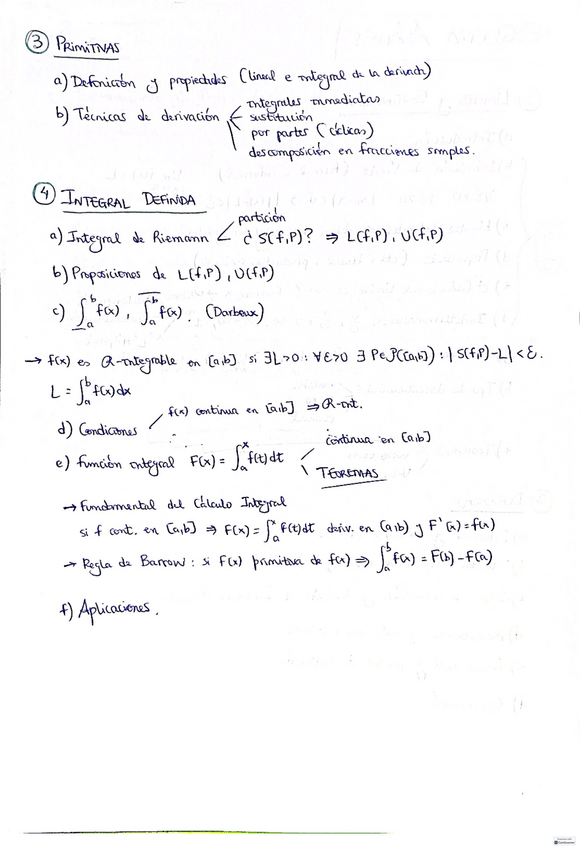 ③ PRIMITIVAS
a) Definición y propiedades (lineal e integral de la derivada)
b) Técnicas de derivación
integrales inmediatas
sustitución
por partes (cíclicas)
descomposición en fracciones simples.
④ INTEGRAL DEFINIDA
a) Integral de Riemann
partición
¿ S(f,P)? ⇒ L(f,P), U(f,P)
b) Proposiciones de L(f,P), U(f,P)
c) ∫_a^b f(x), ∫_a^b f(x). (Darboux)
→ f(x) es R-integrable en [a,b] si ∃L>0 : ∀ε>0 ∃ P∈P([a,b]) : | S(f,P)-L| < ε.
L = ∫_a^b f(x)dx
d) Condiciones
f(x) continua en [a,b] ⇒ R-int.
e) función integral F(x) = ∫_a^x f(t)dt
continua en [a,b]
TEOREMAS
→ Fundamental del Cálculo Integral
si f cont. en [a,b] ⇒ F(x) = ∫_a^x f(t)dt deriv. en (a,b) y F'(x) = f(x)
→ Regla de Barrow : si F(x) primitiva de f(x) ⇒ ∫_a^b f(x) = F(b) - F(a)
f) Aplicaciones.